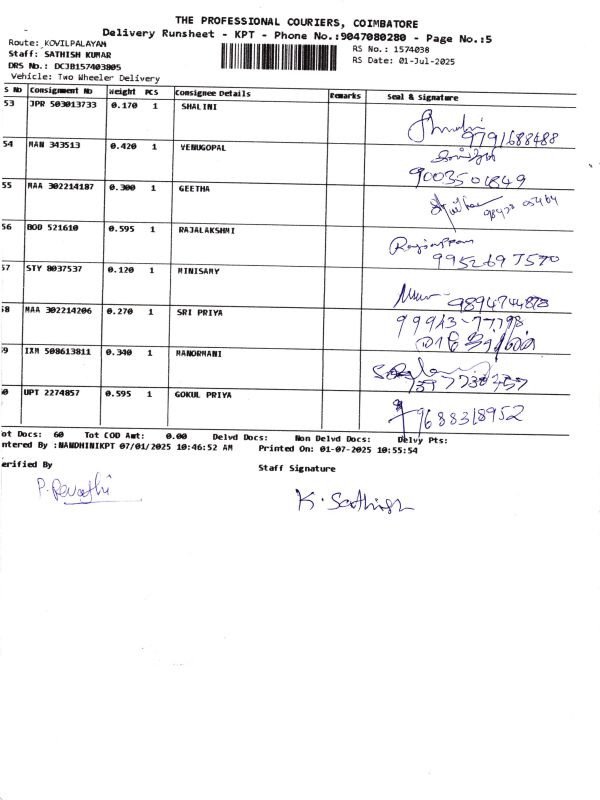 THE PROFESSIONAL COURIERS, COIMBATORE
Delivery Runsheet - KPT - Phone No.:9047080280 - Page No.:5
Route: KOVILPALAYAM
Staff: SATHISH KUMAR
DRS No.: DCJB157403805
Vehicle: Two Wheeler Delivery
RS No.: 1574038
RS Date: 01-Jul-2025
S No Consignment No Weight PCS Consignee Details Remarks Seal & Signature
53 JPR 503013733 0.170 1 SHALINI
9791688488
54 MAN 343513 0.420 1 VENUGOPAL
9003501849
55 MAA 302214187 0.300 1 GEETHA
98428 05464
56 BOD 521610 0.595 1 RAJALAKSHMI
995269 7570
57 STY 8037537 0.120 1 MINISAMY
9894744878
58 MAA 302214206 0.270 1 SRI PRIYA
99943-77798
59 IXM 508613811 0.340 1 MANORMANI
60 UPT 2274857 0.595 1 GOKUL PRIYA
9688318952
ot Docs: 60 Tot COD Amt: 0.00 Delvd Docs: Non Delvd Docs: Delvy Pts:
ntered By :NANDHINIKPT 07/01/2025 10:46:52 AM Printed On: 01-07-2025 10:55:54
erified By
Staff Signature
P. Revathi
K. Sathish